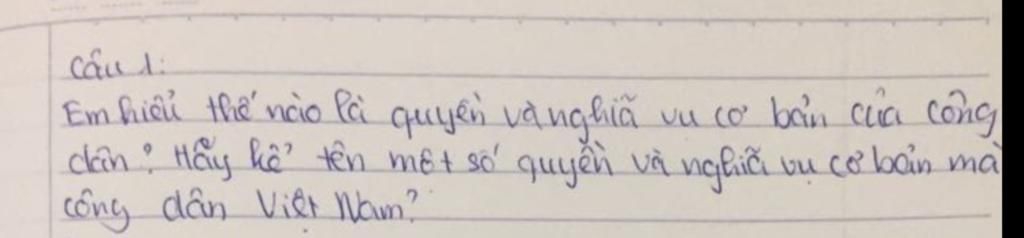 Câu 1:
Em hiểu thế nào là quyền và nghiã vụ cơ bản của công
dân? Hãy kể tên một số quyền và nghiã vụ cơ bản mà
công dân Việt Nam?